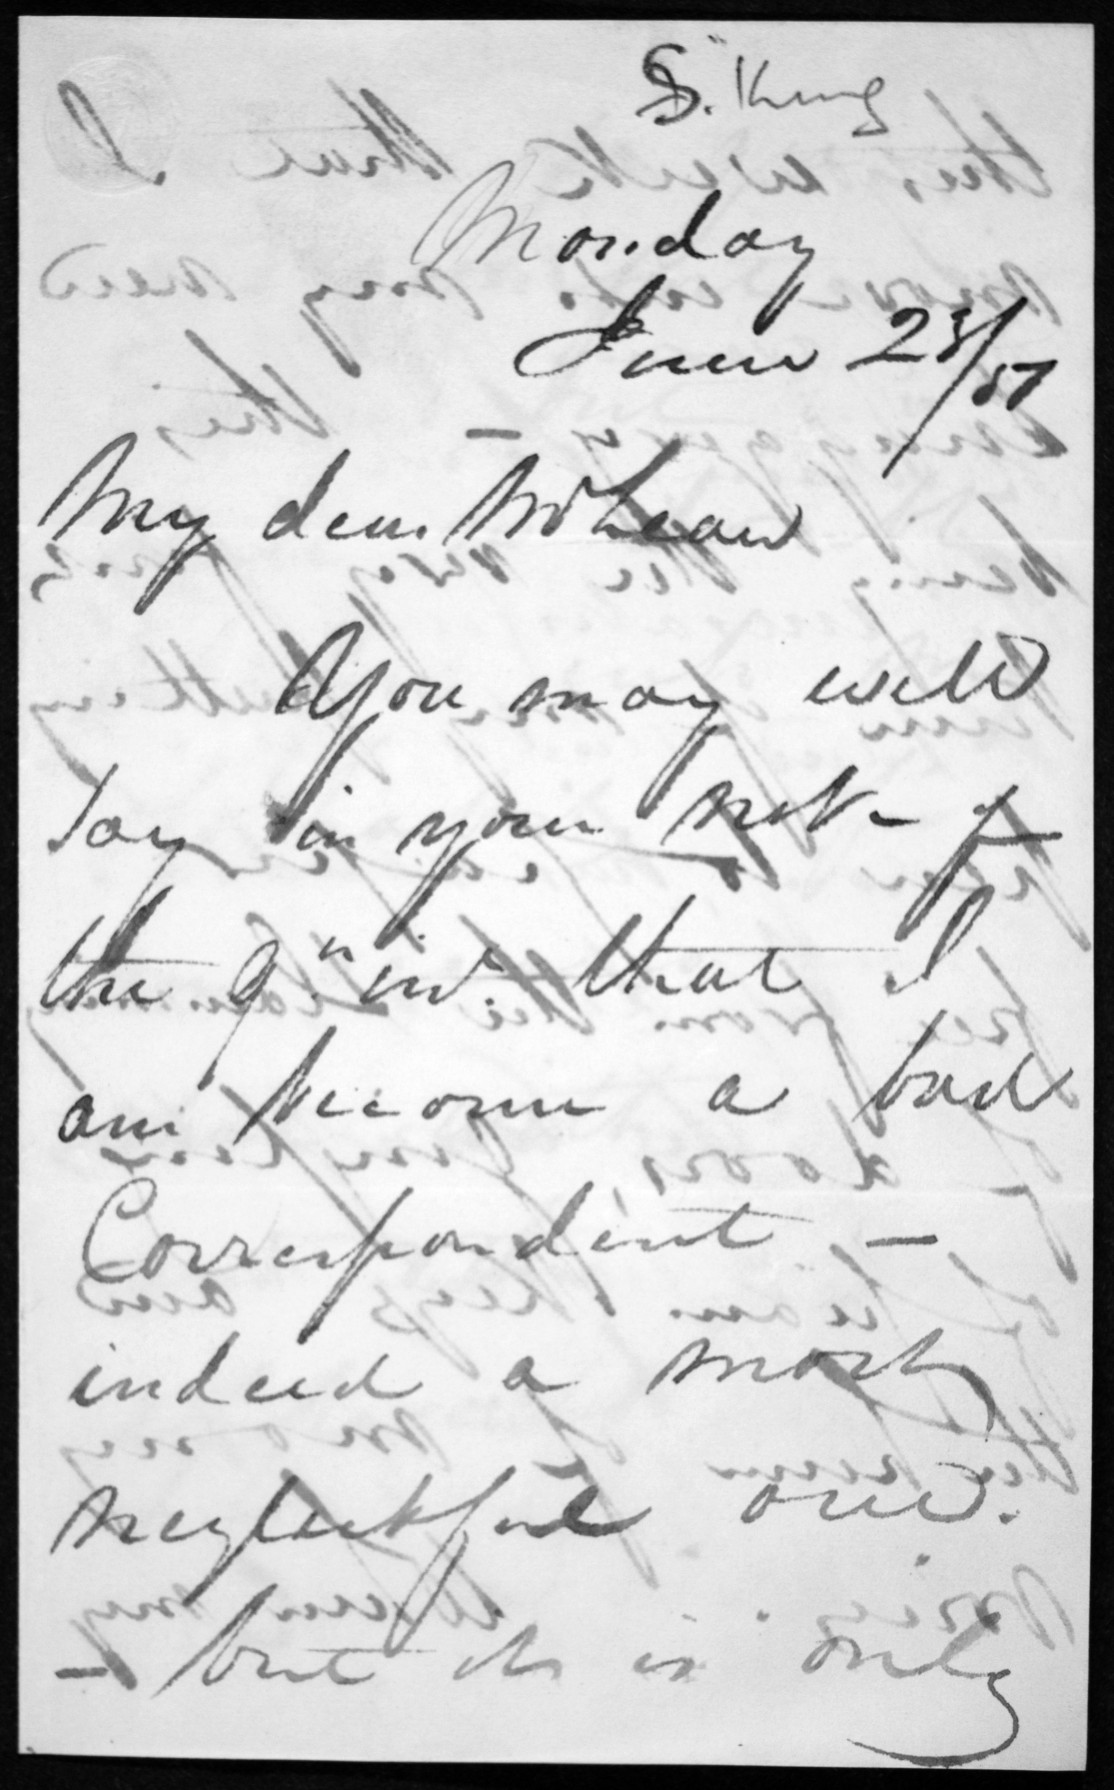 S. King
Monday
June 23/51
My dear McLean
You may well
Say in your note of
the 9" int that I
am become a bad
Correspondent —
indeed a most
neglectful one.
— but it is only